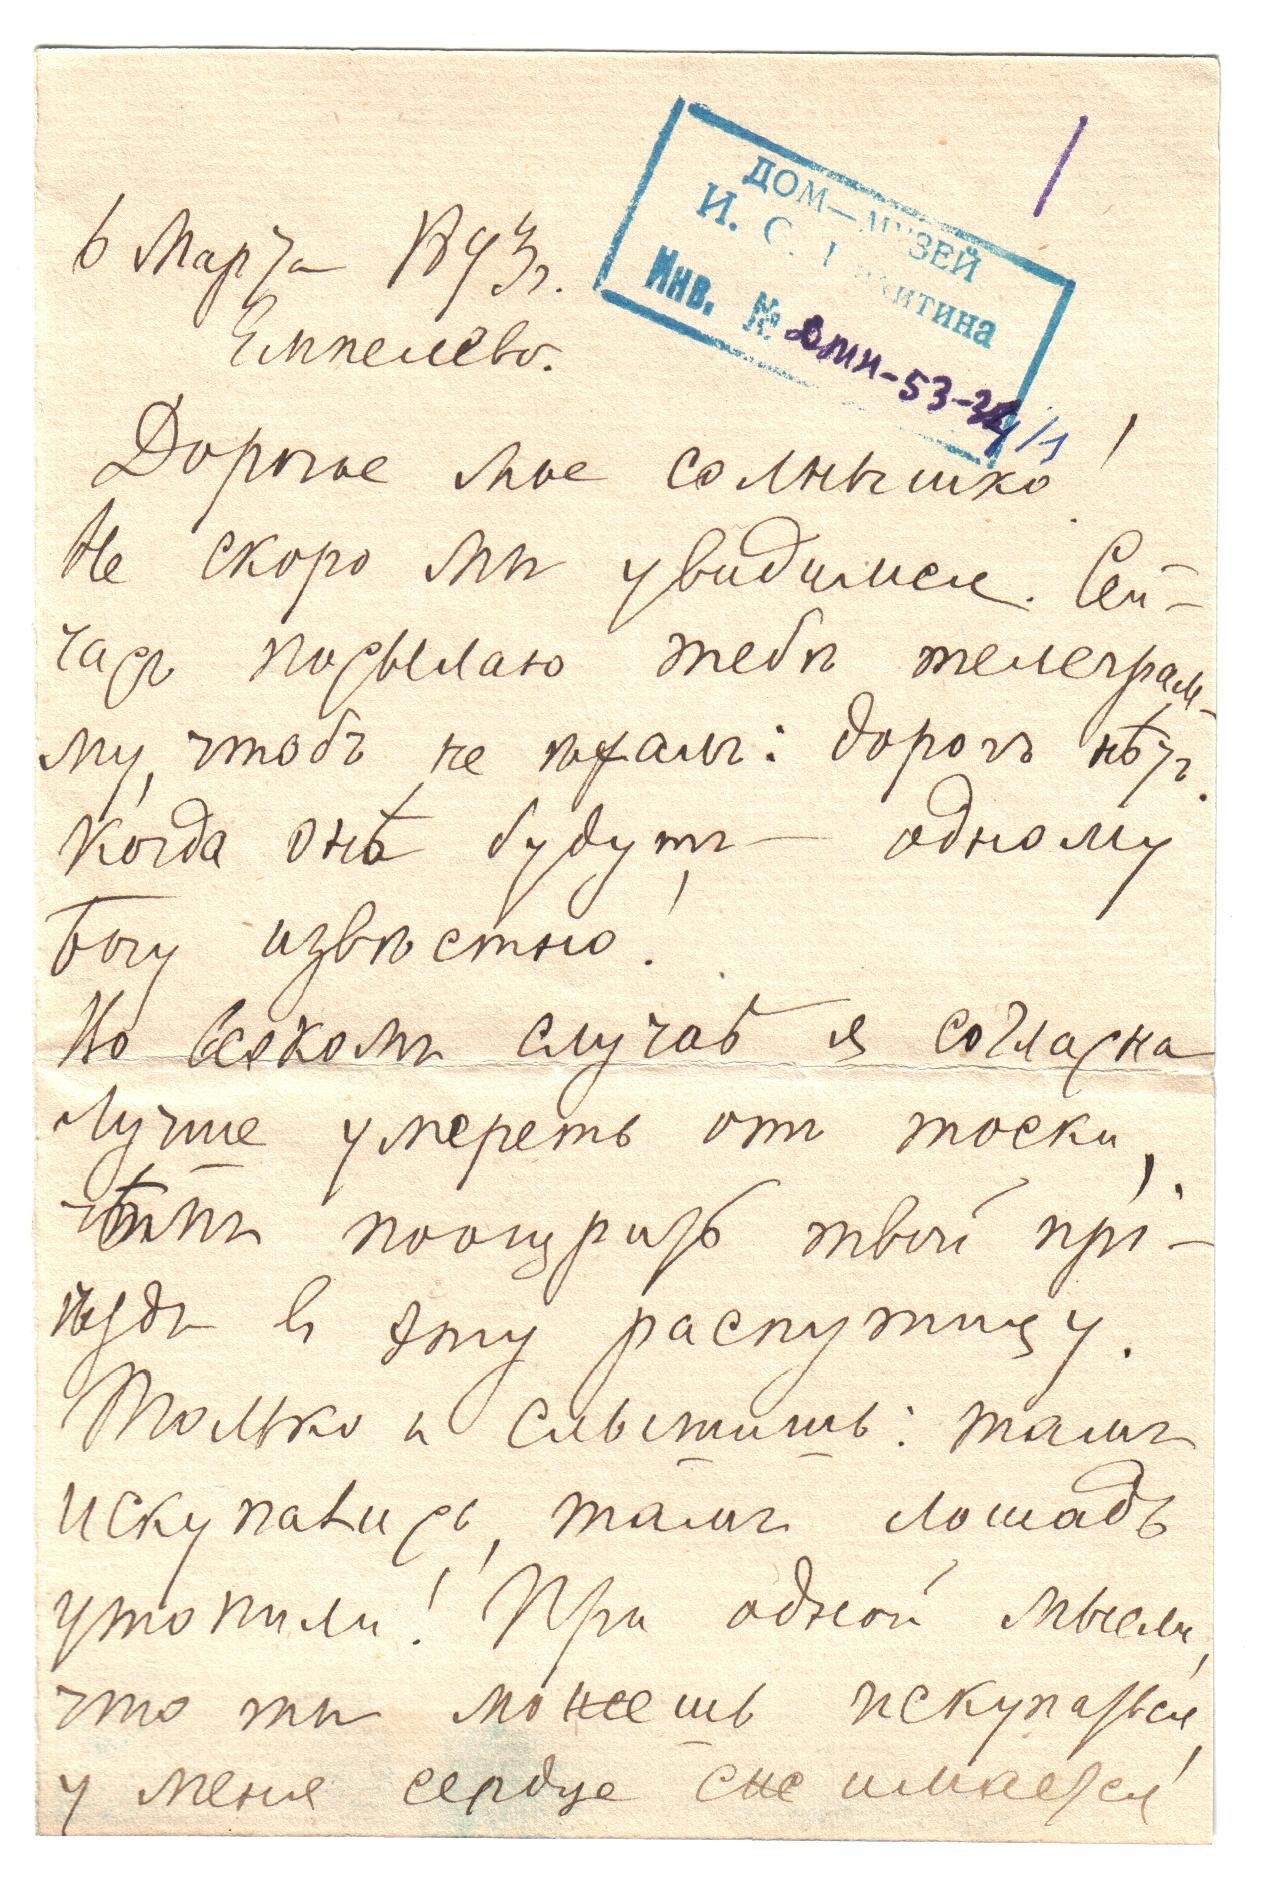 ДОМ—МУЗЕЙ
И. С. Никитина
Инв. № омн-53-34/1
6 Марта 1893 г.
Емпелево.
Дорогое мое солнышко!
Не скоро мы увидимся. Сей-
часъ посылаю тебѣ телеграм-
му, чтобъ не ѣхалъ: дорогъ нѣтъ.
Когда онѣ будутъ — одному
Богу извѣстно!
Во всякомъ случаѣ я согласна
лучше умереть отъ тоски,
чѣмъ поощрять твой прі-
ѣздъ въ эту распутицу.
Только и слышишь: тамъ
искупались, тамъ лошадь
утопили! При одной мысли,
что ты можешь искупаться,
у меня сердце сжимается